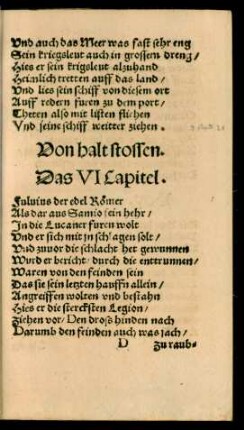 Vnd auch das Meer was fast sehr eng
Sein kriegsleut auch in grossem dreng/
Hies er sein krigsleut alzuhand
Heimlich tretten auff das land/
Vnd lies sein schiff von diesem ort
Auff redern furen zu dem port/
Theten also mit listen flihen
Vnd seine schiff weitter ziehen.
Von halt stossen.
Das VI Capitel.
Fuluius der edel Römer
Als der aus Samio sein hehr/
In die Lucaner furen wolt
Vnd er sich mit jn schlagen solt/
Vnd zuuor die schlacht het gewunnen
Wurd er bericht/ durch die enttrunnen/
Waren von den feinden sein
Das sie sein letzten hauffn allein/
Angreiffen wolten vnd bestahn
Hies er die stercksten Legion/
Ziehen vor/ Den dross hinden nach
Darumb den feinden auch was jach/
D zu raub-